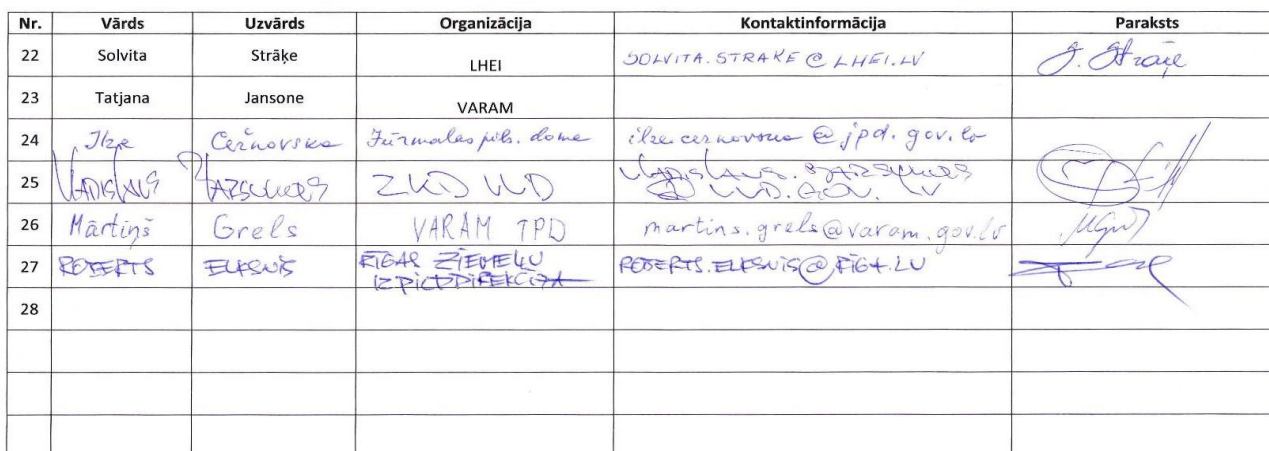 Nr. Vārds Uzvārds Organizācija Kontaktinformācija Paraksts
22 Solvita Strāķe LHEI SOLVITA.STRAKE@LHEI.LV S. Strāķe
23 Tatjana Jansone VARAM
24 Ilze Černovska Jūrmalas pils. dome @jpd.gov.lv
25 VLADISLAVS ZKD VVD
VVD.GOV.LV
26 Mārtiņš Grels VARAM TPD martins.grels@varam.gov.lv
27 ROBERTS ELKSNIS RĪGAS ZIEMEĻU ROBERTS.ELKSNIS@RIGA.LV
28